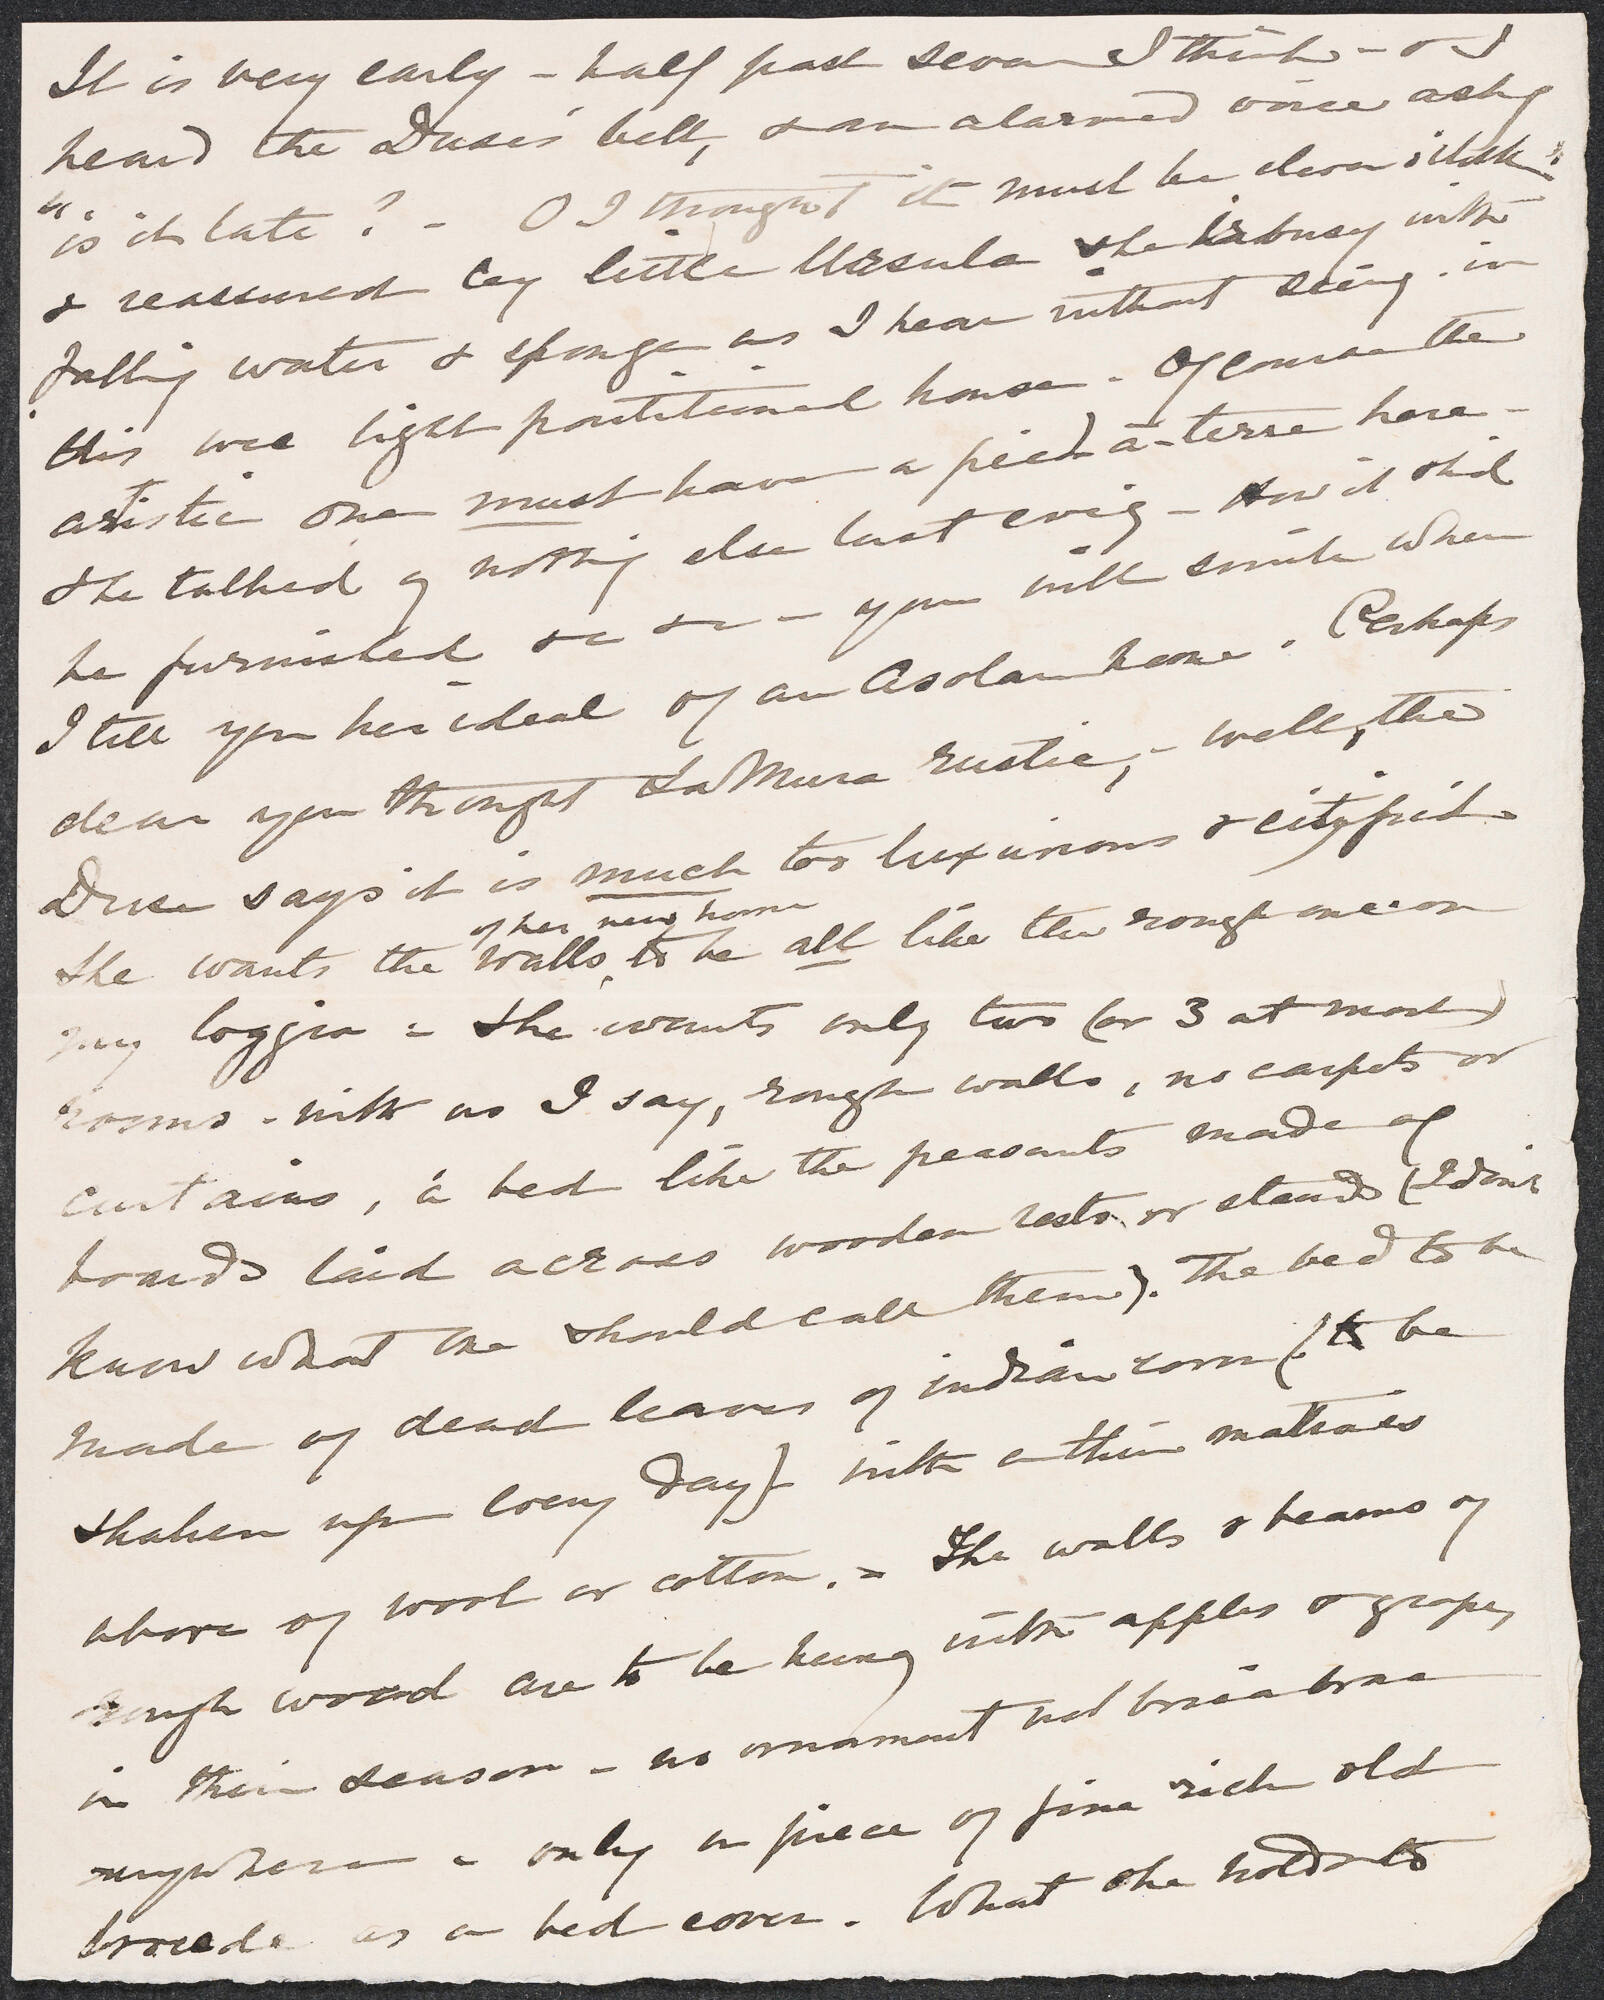 It is very early - half past seven I think - & I
heard the Duse's bell, & an alarmed voice askg
"is it late? - O I thought it must be eleven o'clock"
& reassured by little Ursula she is busy with
falling water & sponge as I hear without seeing in
this wee light partitioned house. Of course the
artistic one must have a pied à-terre here -
She talked of nothing else last eveng - How it shd
be furnished &c &c - you will smile when
I tell you her ideal of an Asolan home. Perhaps
dear you thought La Mura rustic, - well, the
Duse says it is much too luxurious & cityfied.
of her new home
She wants the walls, to be all like the rough one on
my loggia - She wants only two (or 3 at most)
rooms - with as I say, rough walls, no carpets or
curtains, a bed like the peasants made of
boards laid across wooden rests or stands (I don't
know what one should call them). The bed to be
made of dead leaves of indian corn (to be
shaken up every day) with a thin mattrass
above of wool or cotton. - The walls & beams of
rough wood are to be hung with apples & grapes,
in their season - no ornament nol bric a brac
anywhere - only a piece of fine rich old
brocade as a bed cover. What she holds to